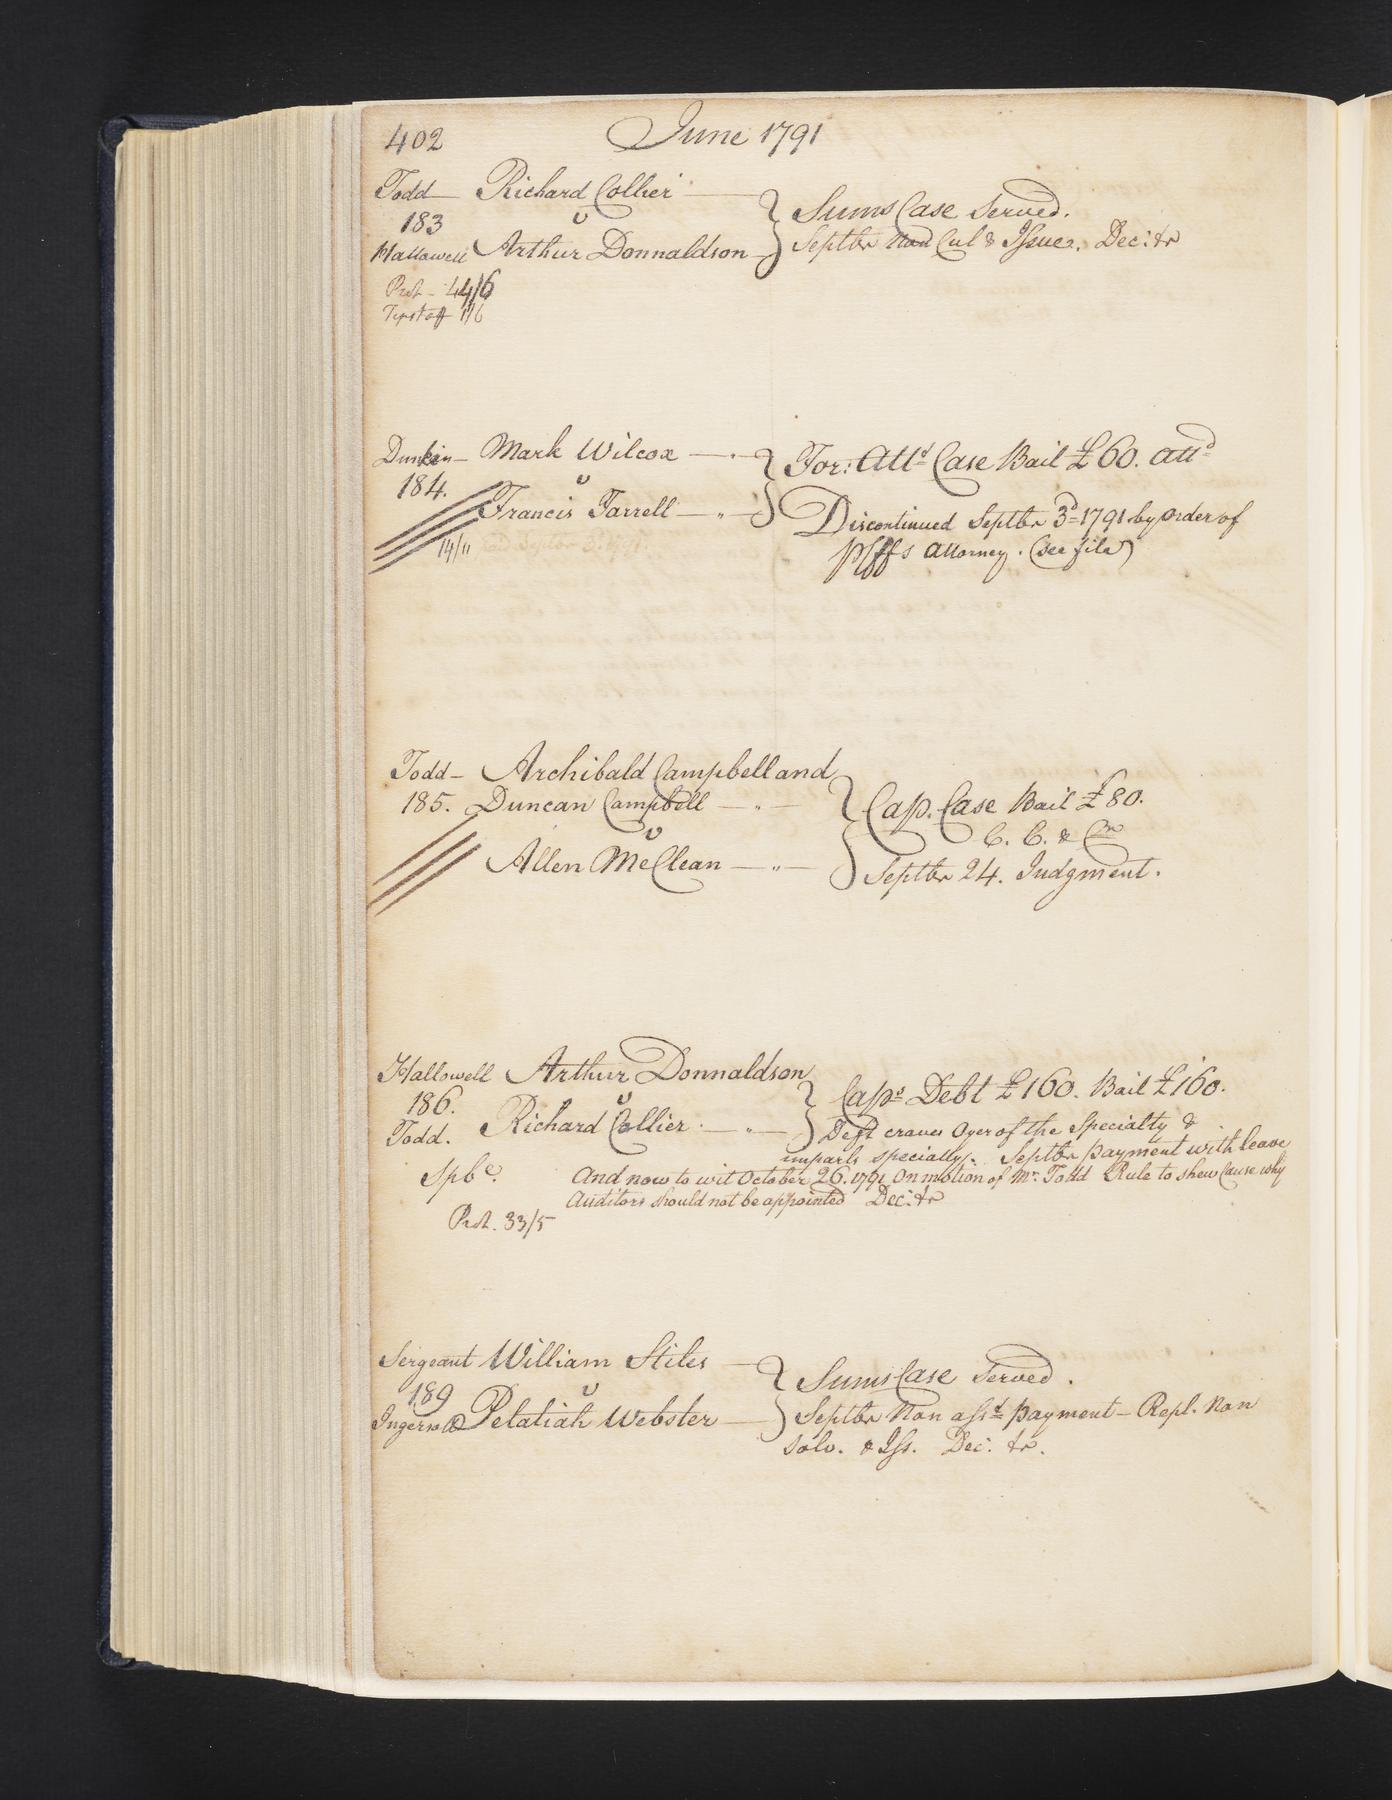 402 June 1791
Todd — Richard Collier — Sums Case Served.
183 v
Hallowell Arthur Donnaldson — Septbr Non Cul & Issue. Dec: tr
Prot - 44/6
Tipstaff 1/6
Dunkin — Mark Wilcox — For: Attt Case Bail £60. attd
184. v
Francis Farrell — " — Discontinued Septbr 3d 1791 by order of
14/11
Plffs Attorney. (see file)
Todd — Archibald Campbell and
185. Duncan Campbell — " — Cap. Case Bail £80.
v C. C. &
Allen McClean — " — Septbr 24. Judgment.
Hallowell Arthur Donnaldson
186. v Caps Debt £160. Bail £160.
Todd. Richard Collier — " — Deft craves Oyer of the Specialty &
imparls specially. Septbr payment with leave
Spbe. And now to wit October 26. 1791 On motion of Mr. Todd Rule to shew Cause why
Auditors should not be appointed Dec: tr
Prot. 33/5
Sergeant William Stiles — Sums Case Served.
189 v
Ingersoll Pelatiah Webster — Septbr Non asst payment — Repl. Non
solv. & Iss. Dec: tr.